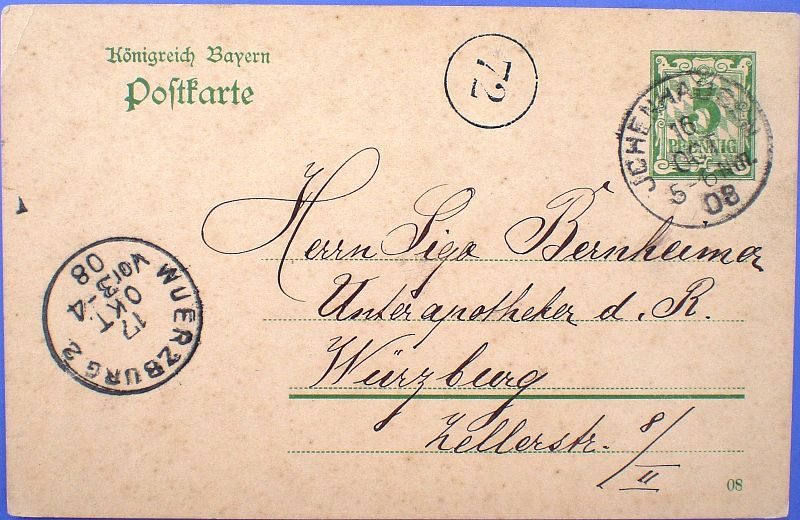 Königreich Bayern
Postkarte
72
5
PFENNIG
JCHENHAUSEN
16
OCT
5-6 Nm.
08
Herrn Sigo Bernheimer
Unterapotheker d. R.
Würzburg
Zellerstr. 8/II
WUERZBURG 2
17
OKT
Vor 3-4
08
08